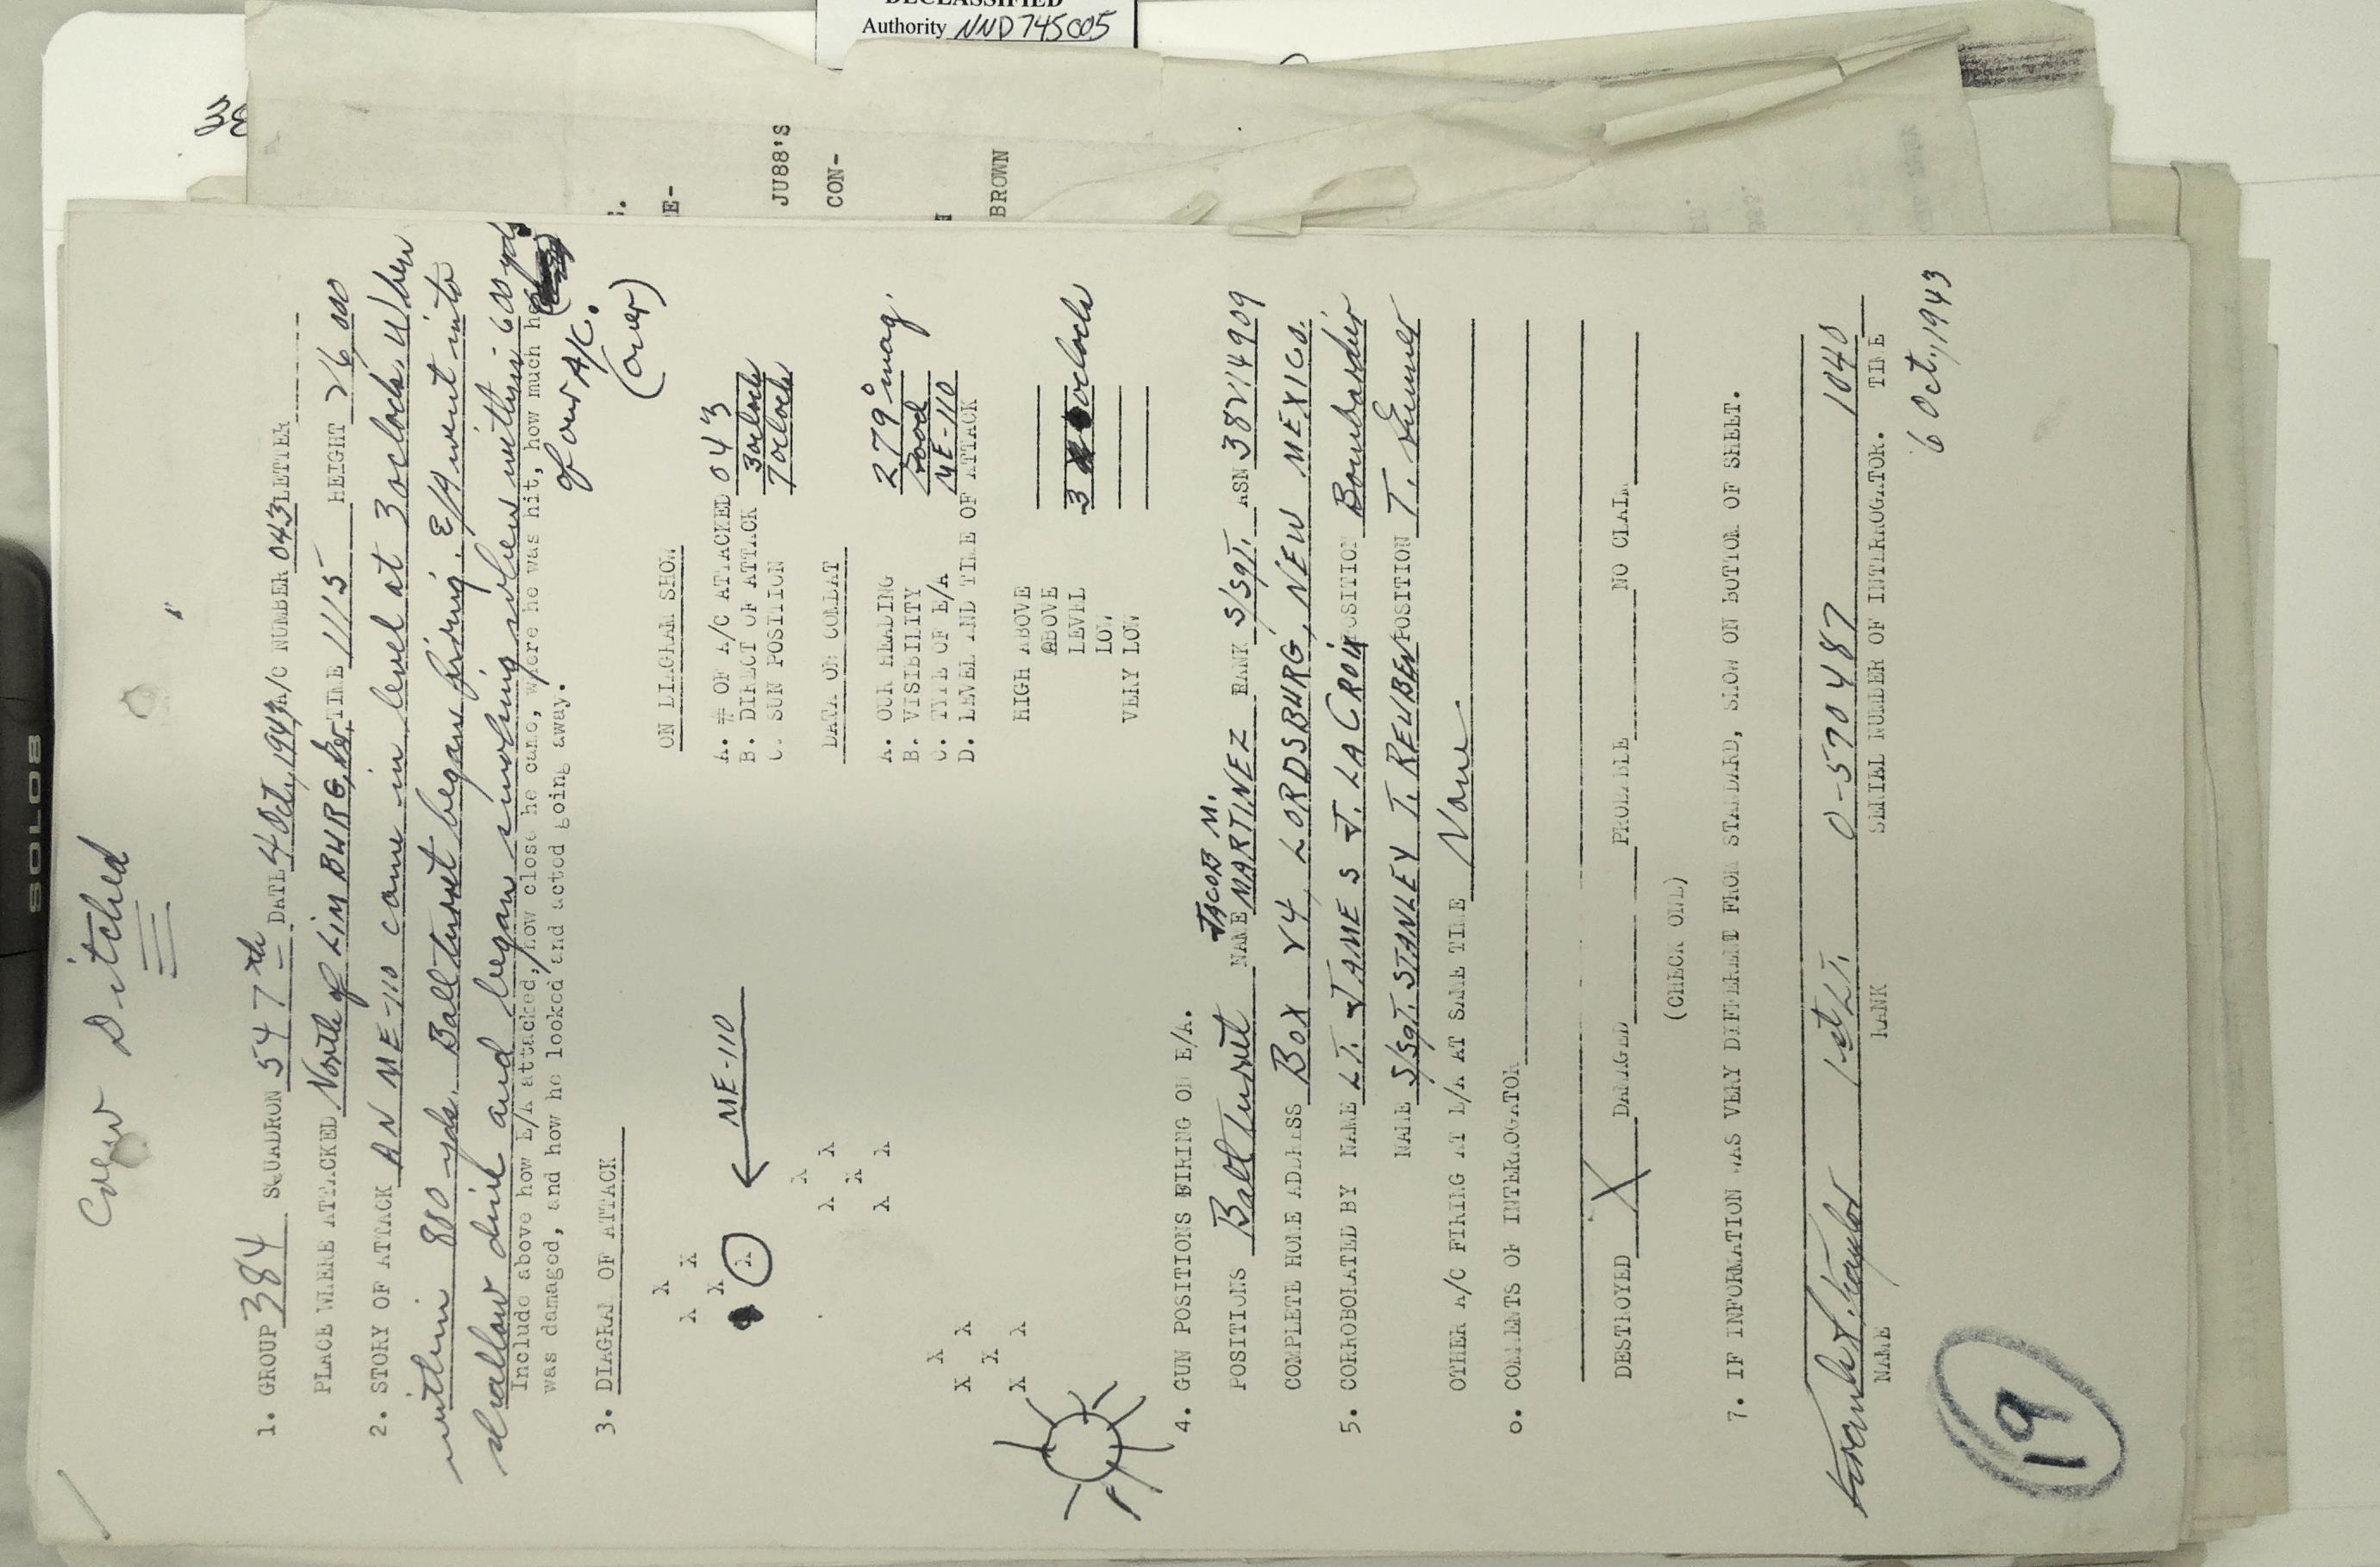 DECLASSIFIED
Authority NND 745005
38
JU88'S
CON-
BROWN
SOLO8
Crew Ditched
1. GROUP 384 SQUADRON 547th DATE 4 Oct, 1943 A/C NUMBER 043 LETTER
PLACE WHERE ATTACKED North of LIMBURG, Ger. TIME 1115 HEIGHT 26,000
2. STORY OF ATTACK AN ME-110 came in level at 3 oclock. When
within 880 yds. Ball turret began firing. E/A went into
shallow dive and began smoking when within 600 yds
Include above how E/A attacked, how close he came, where he was hit, how much he
was damaged, and how he looked and acted going away.
of our A/C.
(over)
3. DIAGRAM OF ATTACK
ON DIAGRAM SHOW
A. # OF A/C ATTACKED 043
B. DIRECT OF ATTACK 3 oclock
C. SUN POSITION 7 oclock
ME-110
DATA ON COMBAT
A. OUR HEADING 279° mag.
B. VISIBILITY Good
C. TYPE OF E/A ME-110
D. LEVEL AND TIME OF ATTACK
HIGH ABOVE
ABOVE
LEVEL 3 oclock
LOW
VERY LOW
4. GUN POSITIONS FIRING ON E/A.
POSITIONS Ball turret NAME JACOB M. MARTINEZ RANK S/Sgt. ASN 38214909
COMPLETE HOME ADDRESS BOX 24, LORDSBURG, NEW MEXICO.
5. CORROBORATED BY NAME LT. JAMES J. LA CROIX POSITION Bombardier
NAME S/Sgt. STANLEY T. REUBEN POSITION T. Gunner
OTHER A/C FIRING AT E/A AT SAME TIME None
6. COMMENTS OF INTERROGATOR
DESTROYED X DAMAGED PROBABLE NO CLAIM
(CHECK ONE)
7. IF INFORMATION WAS VERY DIFFERENT FROM STANDARD, SHOW ON BOTTOM OF SHEET.
1st LT. 0-570487 1040
NAME RANK SERIAL NUMBER OF INTERROGATOR. TIME
6 Oct, 1943
19